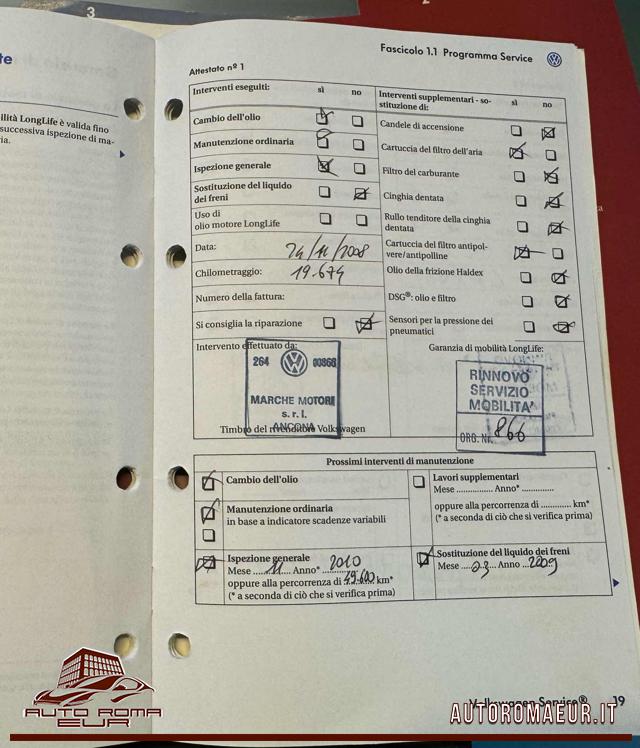 3
te
ilità LongLife è valida fino
successiva ispezione di ma-
ria.
Fascicolo 1.1 Programma Service
Attestato nº 1
Interventi eseguiti: sì no
Cambio dell'olio
Manutenzione ordinaria
Ispezione generale
Sostituzione del liquido
dei freni
Uso di
olio motore LongLife
Data: 24/11/2008
Chilometraggio: 19.674
Numero della fattura:
Si consiglia la riparazione
Interventi supplementari - so-
stituzione di: sì no
Candele di accensione
Cartuccia del filtro dell'aria
Filtro del carburante
Cinghia dentata
Rullo tenditore della cinghia
dentata
Cartuccia del filtro antipol-
vere/antipolline
Olio della frizione Haldex
DSG®: olio e filtro
Sensori per la pressione dei
pneumatici
Intervento effettuato da:
264 00866
MARCHE MOTORI
s. r. l.
ANCONA
Timbro del rivenditore Volkswagen
Garanzia di mobilità LongLife:
RINNOVO
SERVIZIO
MOBILITA'
ORG. Nr. 866
Prossimi interventi di manutenzione
Cambio dell'olio
Manutenzione ordinaria
in base a indicatore scadenze variabili
Ispezione generale
Mese ....11.... Anno* ..2010
oppure alla percorrenza di 49.600 km*
(* a seconda di ciò che si verifica prima)
Lavori supplementari
Mese ............... Anno* .............
oppure alla percorrenza di ............ km*
(* a seconda di ciò che si verifica prima)
Sostituzione del liquido dei freni
Mese ....03.... Anno ..2009
Volkswagen Service® 19
AUTO ROMA
EUR
AUTOROMAEUR.IT